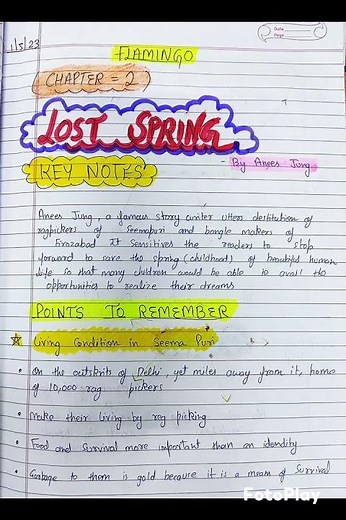 Date
Page
1/5/23
FLAMINGO
CHAPTER = 2
LOST SPRING
- By Anees Jung
KEY NOTES
Anees Jung, a famous story writer utters destitution of
ragpickers of Seemapuri and bangle makers of
Firozabad It Sensitives the readers to stop
forward to save the spring (childhood) of beautiful human
life so that many children would be able to avail the
opportunities to realize their dreams
POINTS TO REMEMBER
Living Condition in Seema Puri
• On the outskirts of Delhi, yet miles away from it, home
of 10,000 rag pickers
• Make their living by rag picking
• Food and Survival more important than an identity
• Garbage to them is gold because it is a means of survival
FotoPlay